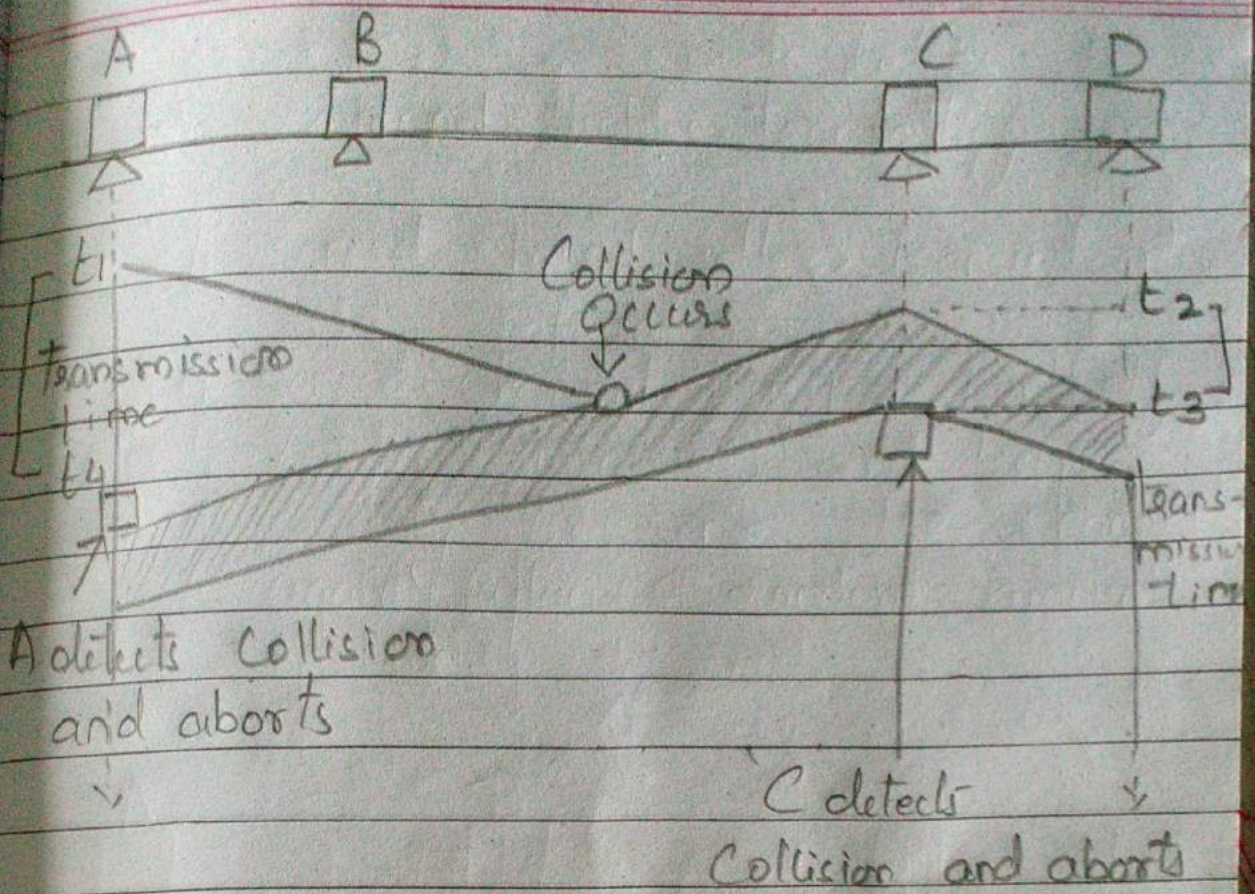 A B C D
t1
Collision
Occurs
t2
transmission
time
t3
t4
trans-
missio
-tim
A detects Collision
and aborts
C detects
Collision and aborts